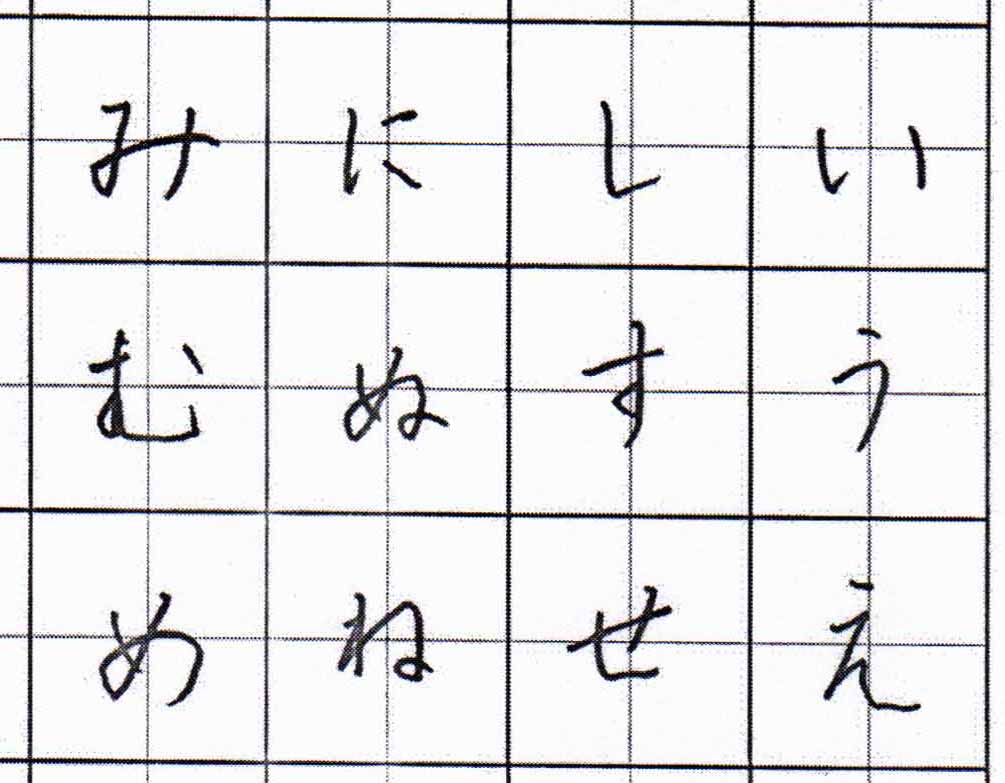 いうえ
しすせ
にぬね
みむめ